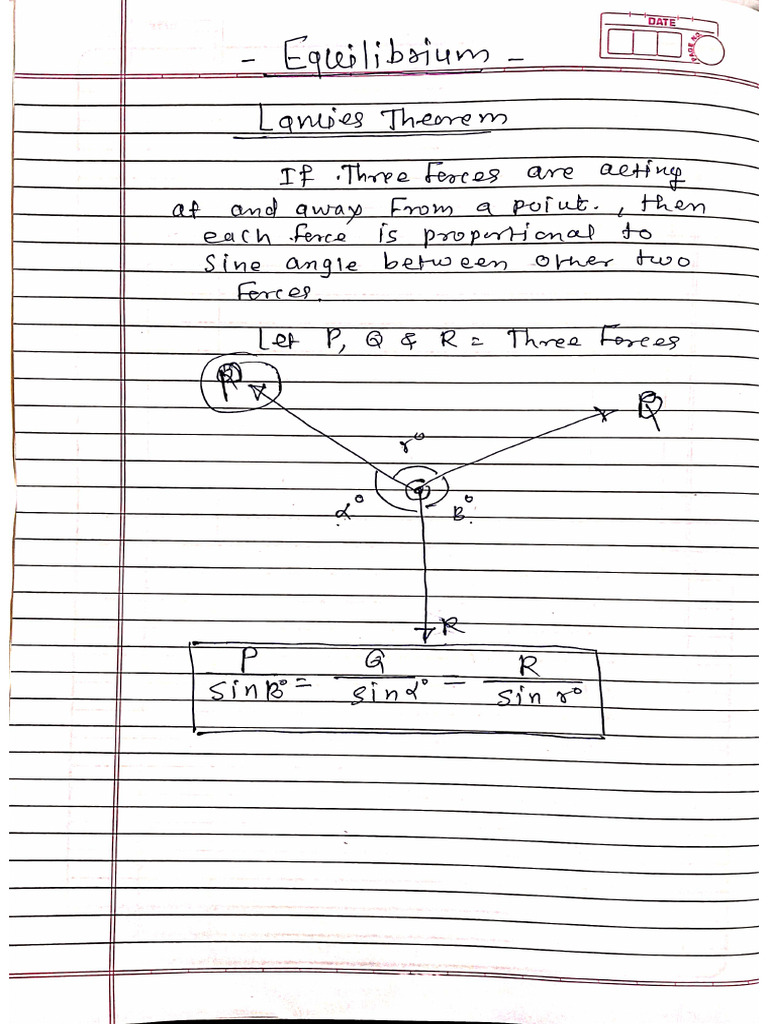 DATE
PAGE NO.
- Equilibrium -
Lamies Theorem
If Three Forces are acting
at and away From a point., then
each force is proportional to
Sine angle between other two
Forces.
Let P, Q & R = Three Forces
P
Q
γ°
α°
B°
R
P/sinB° = Q/sinα° = R/sin γ°